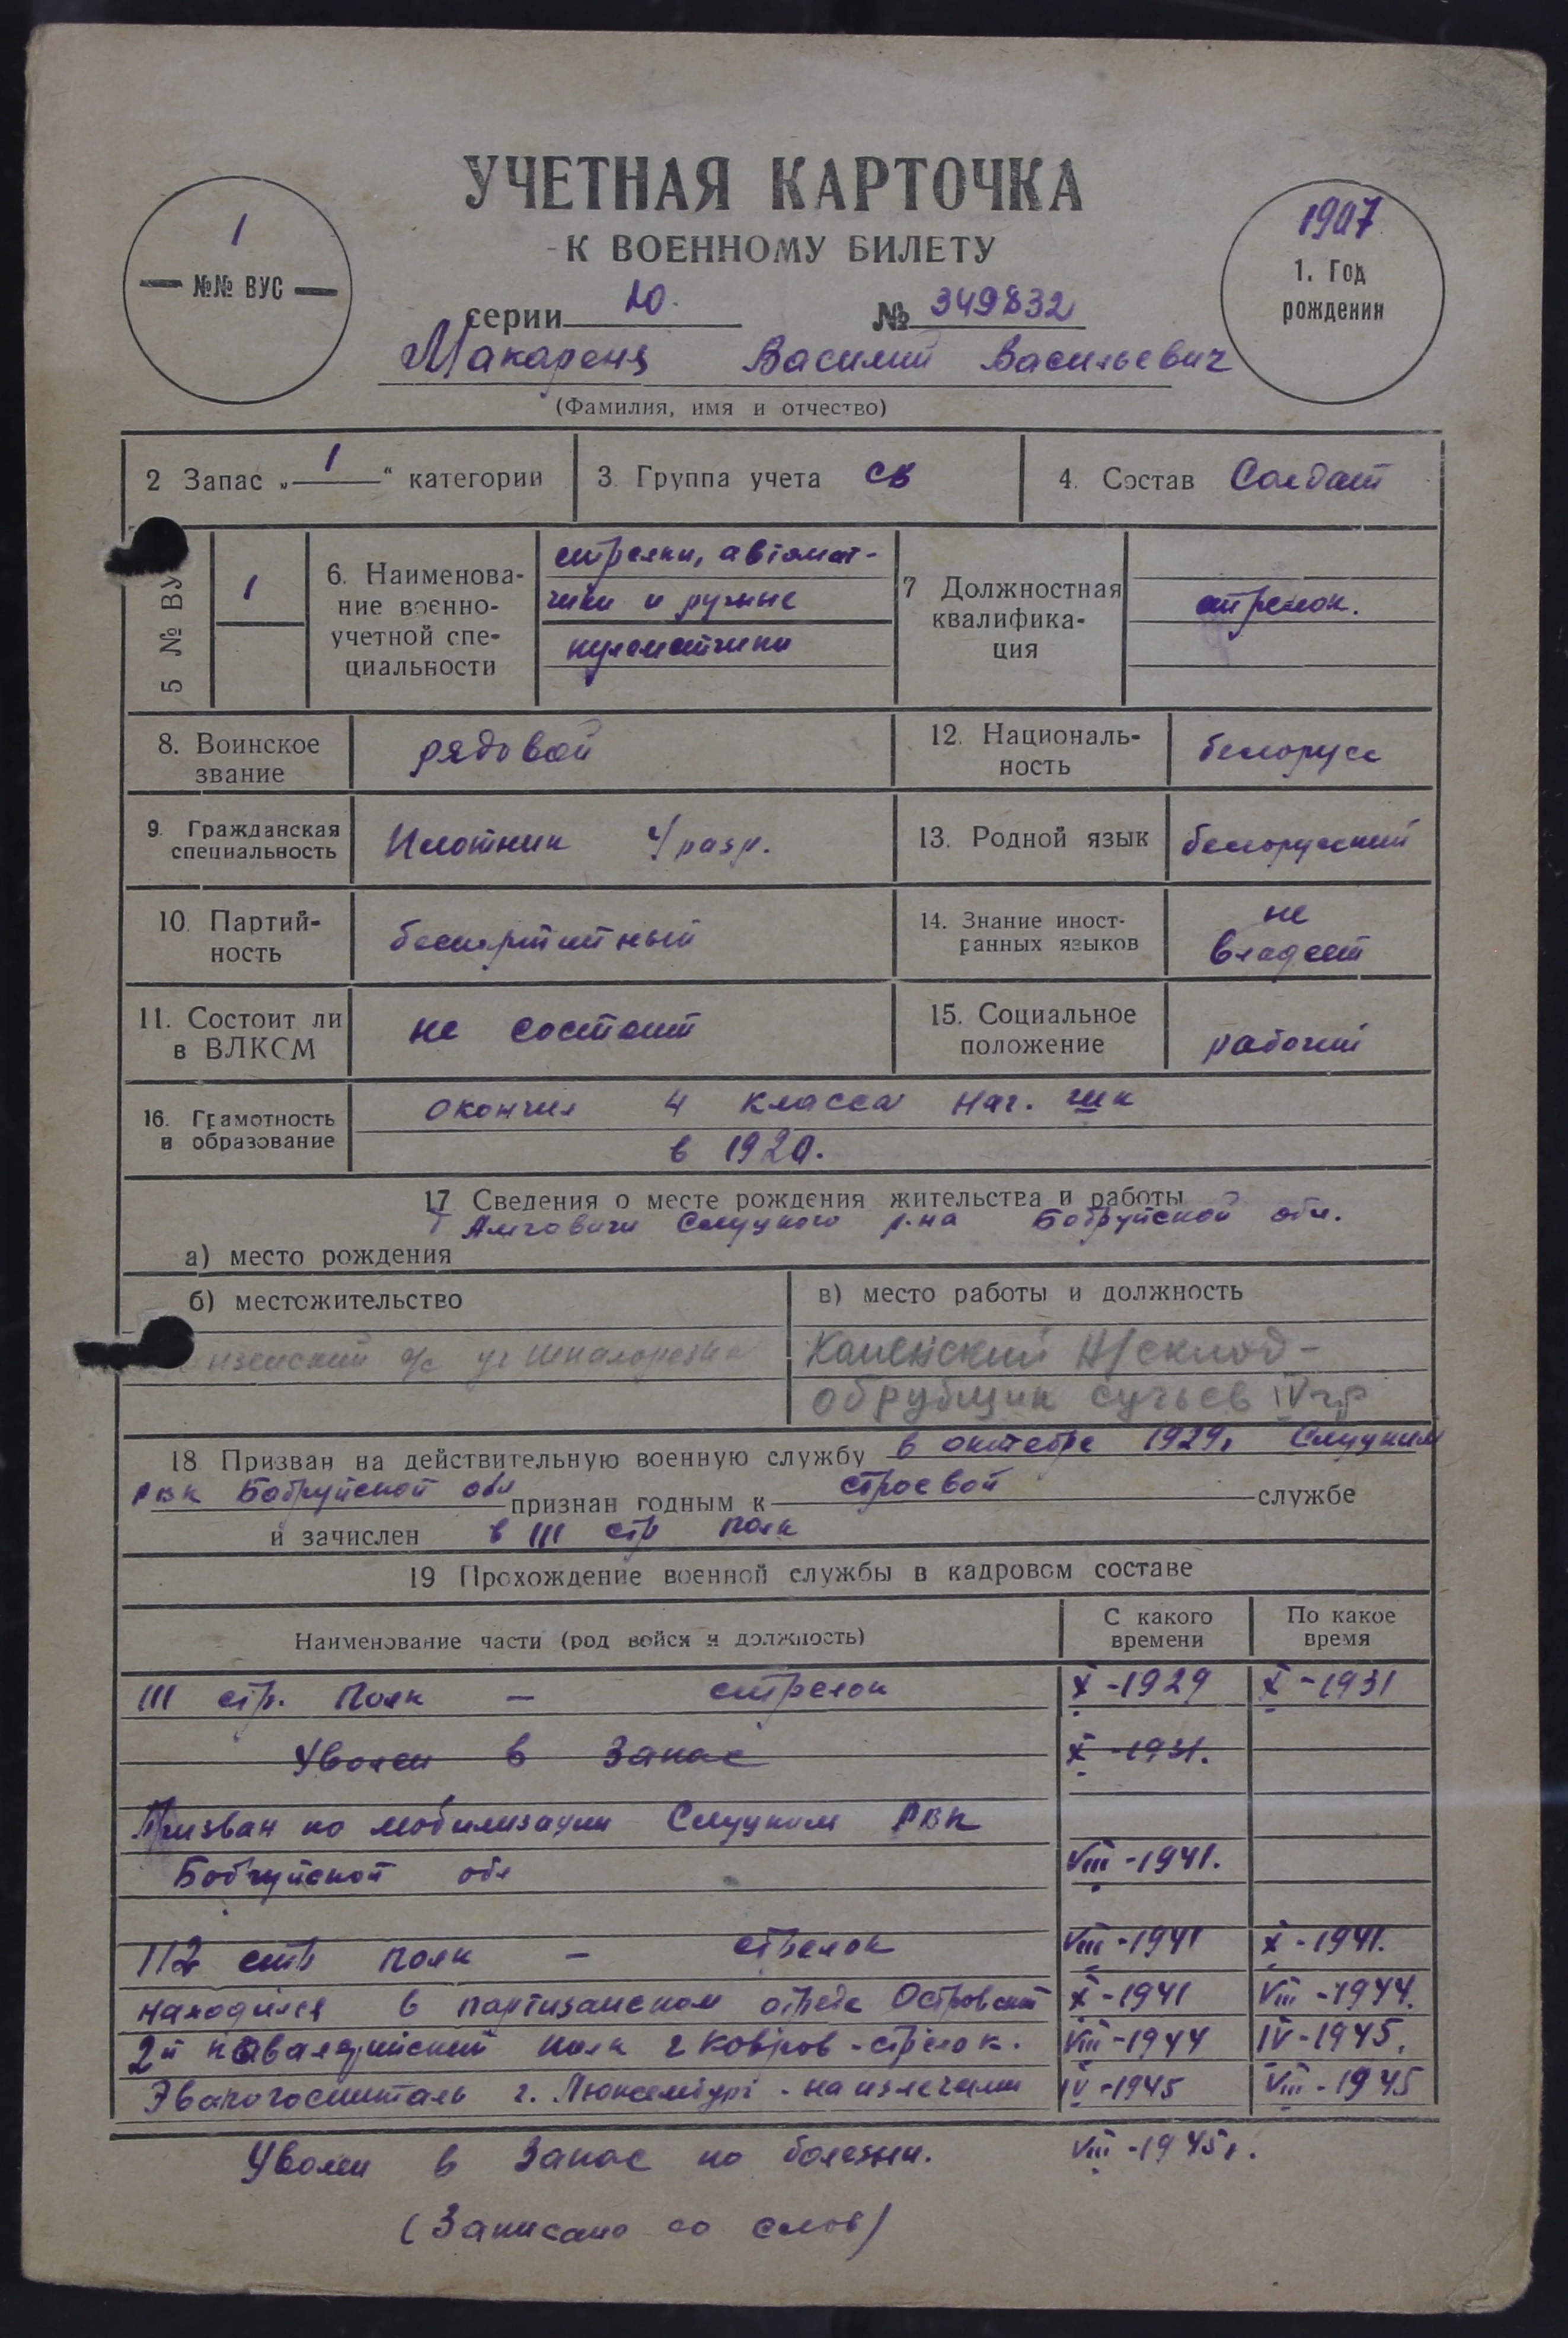 УЧЕТНАЯ КАРТОЧКА
К ВОЕННОМУ БИЛЕТУ
1
№№ ВУС
1907
1. Год
рождения
серии Ю. № 349832
Макареня Василий Васильевич
(Фамилия, имя и отчество)
2 Запас „ 1 “ категории
3. Группа учета СВ
4. Состав Солдат
5 № ВУ
1
6. Наименова-
ние военно-
учетной спе-
циальности
стрелки, автомат-
чики и ручные
пулеметчики
7 Должностная
квалифика-
ция
стрелок.
8. Воинское
звание
рядовой
12. Националь-
ность
белорусс
9. Гражданская
специальность
Плотник 4/разр.
13. Родной язык
белорусский
10. Партий-
ность
беспартийный
14. Знание иност-
ранных языков
не
владеет
11. Состоит ли
в ВЛКСМ
не состоит
15. Социальное
положение
рабочий
16. Грамотность
и образование
окончил 4 класса нач. шк
в 1920.
17 Сведения о месте рождения жительства и работы
Амговичи Слуцкого р-на Бобруйской обл.
а) место рождения
б) местожительство
в) место работы и должность
Каменский Н/склад-
обрубщик сучьев IV гр
18 Призван на действительную военную службу в октябре 1929г Слуцким
РВК Бобруйской обл признан годным к строевой службе
и зачислен в III стр полк
19 Прохождение военной службы в кадровом составе
Наименование части (род войск и должность)
С какого
времени
По какое
время
III стр. полк — стрелок X-1929 X-1931
Уволен в Запас X-1931.
Призван по мобилизации Слуцким РВК
Бобруйской обл VIII-1941.
112 стр полк — стрелок VIII-1941 X-1941.
находился в партизанском отряде Островский X-1941 VIII-1944.
2й кавалерийский полк г Ковров-стрелок. VIII-1944 IV-1945.
Эвакогоспиталь г. Люксембург - на излечении IV-1945 VIII-1945
Уволен в Запас по болезни. VIII-1945г.
(Записано со слов)